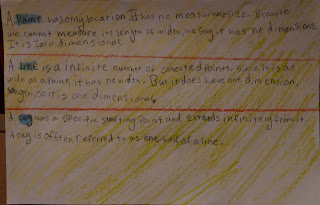 A Point has only location It has no measurable size. Because
we cannot measure its length or width, we say it has no dimensions.
It is zero dimensional.
A line is a infinite number of conected Points. Since it is as
wide as a point, it has no width. But it does have one dimension,
length, so it is one dimensional.
A ray has a specific starting Point and extends infinitely from it.
A ray is often referred to as one-half of a line.